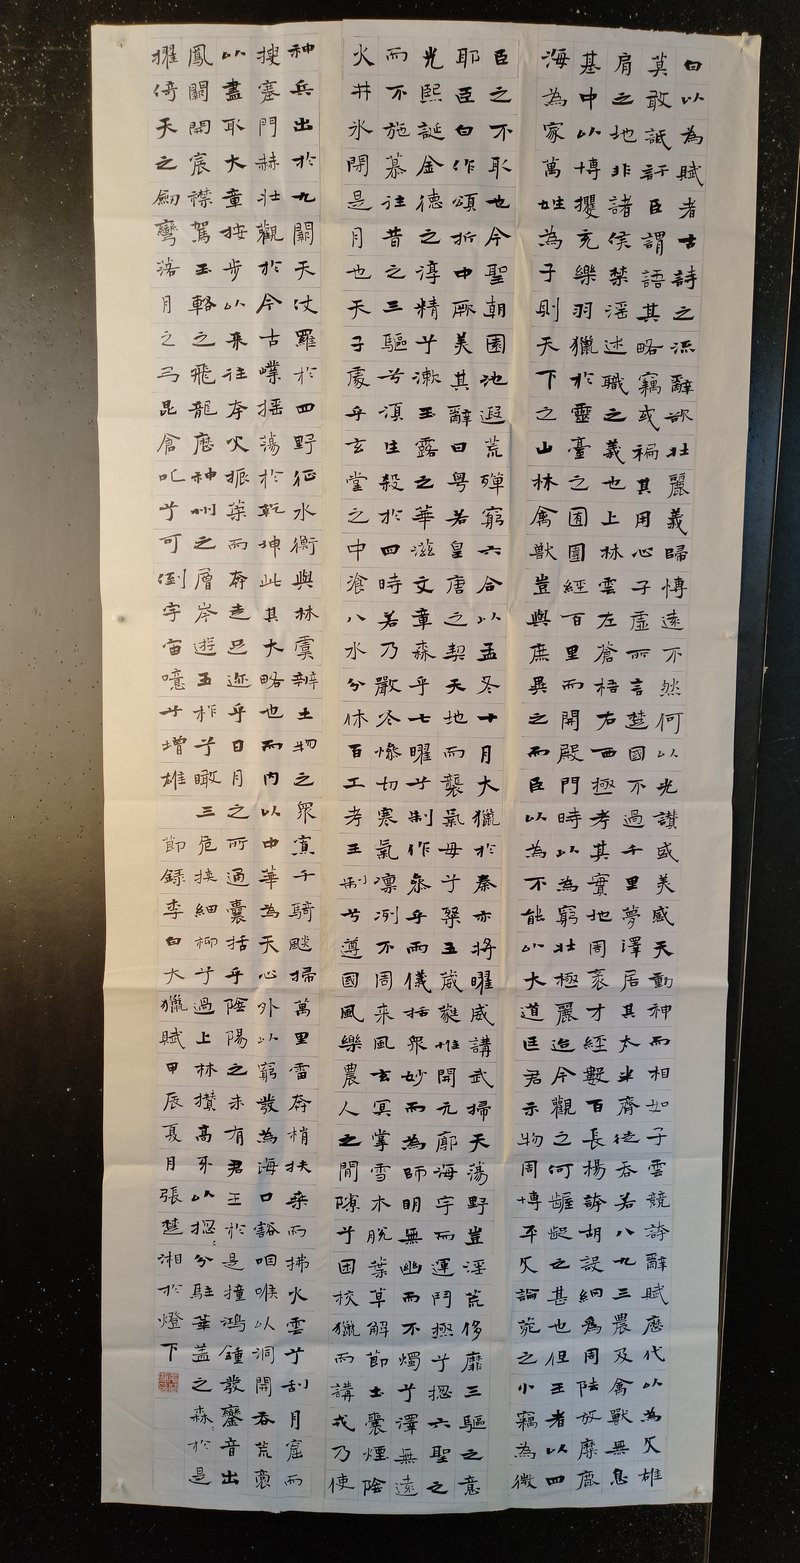 白以為賦者古詩之流辭欲壯麗義歸博遠不然何以光讚盛美感天動神而相如子雲競誇辭賦歷代以為文雄
莫敢詆訐臣謂語其略竊或褊其用心子虛所言楚國不過千里夢澤居其大半齊徒吞若八九三農及禽獸無息
肩之地非諸侯禁淫述職之義也上林雲左蒼梧右西極考其實地周袤才經數百長楊誇胡設網為周阹放麋鹿
其中以博攫充樂羽獵於靈臺之囿圍經百里而開殿門時以為窮壯極麗迨今觀之何齷齪之甚也但王者以四
海為家萬姓為子則天下之山林禽獸豈與庶異之而臣以為不能以大道匡君示物周博平文論苑之小竊為微
臣之不取也今聖朝園池遐荒殫窮六合以孟冬十月大獵於秦亦將曜威講武掃天蕩野豈淫荒侈靡三驅之意
耶臣白作頌折中厥美其辭曰粵若皇唐之契天地而襲氣母兮粲五葳蕤惟開元廓海宇而運鬥極兮揔六聖之
光熙誕金德之淳精兮漱玉露之華滋文章森乎七曜兮制作參乎兩儀括眾妙而為師明無幽而不燭兮澤無遠
而不施慕往昔之三驅兮須生殺於四時若乃嚴冬慘切寒氣凜冽不周來風玄冥掌雪木脫葉草解節土囊煙陰
火井冰閉是月也天子處乎玄堂之中湌八水兮休百工考王制兮遵國風樂農人之閒隙兮因校獵而講戎乃使
神兵出於九闕天仗羅於四野征水衡與林虞辨土物之眾寡千騎飈掃萬里雷奔梢扶桑而拂火雲兮刮月窟而
搜塞門赫壯觀於今古嶪搖蕩於乾坤此其大略也而內以中華為天心外以窮發為海口豁咽喉以洞開吞荒裔
以盡取大章按步以來往夸父振策而奔走足迹乎日月之所通囊括乎陰陽之未有君王於是撞鴻鐘發鑾音出
鳳闕開宸襟駕玉輅之飛龍歷神州之層岑遊五柞兮瞰三危挾細柳兮過上林攢高牙以揔揔兮駐華蓋之森森於是
擢倚天之劍彎落月之弓昆侖叱兮可倒宇宙噫兮增雄 節錄李白大獵賦甲辰夏月張楚湘於燈下